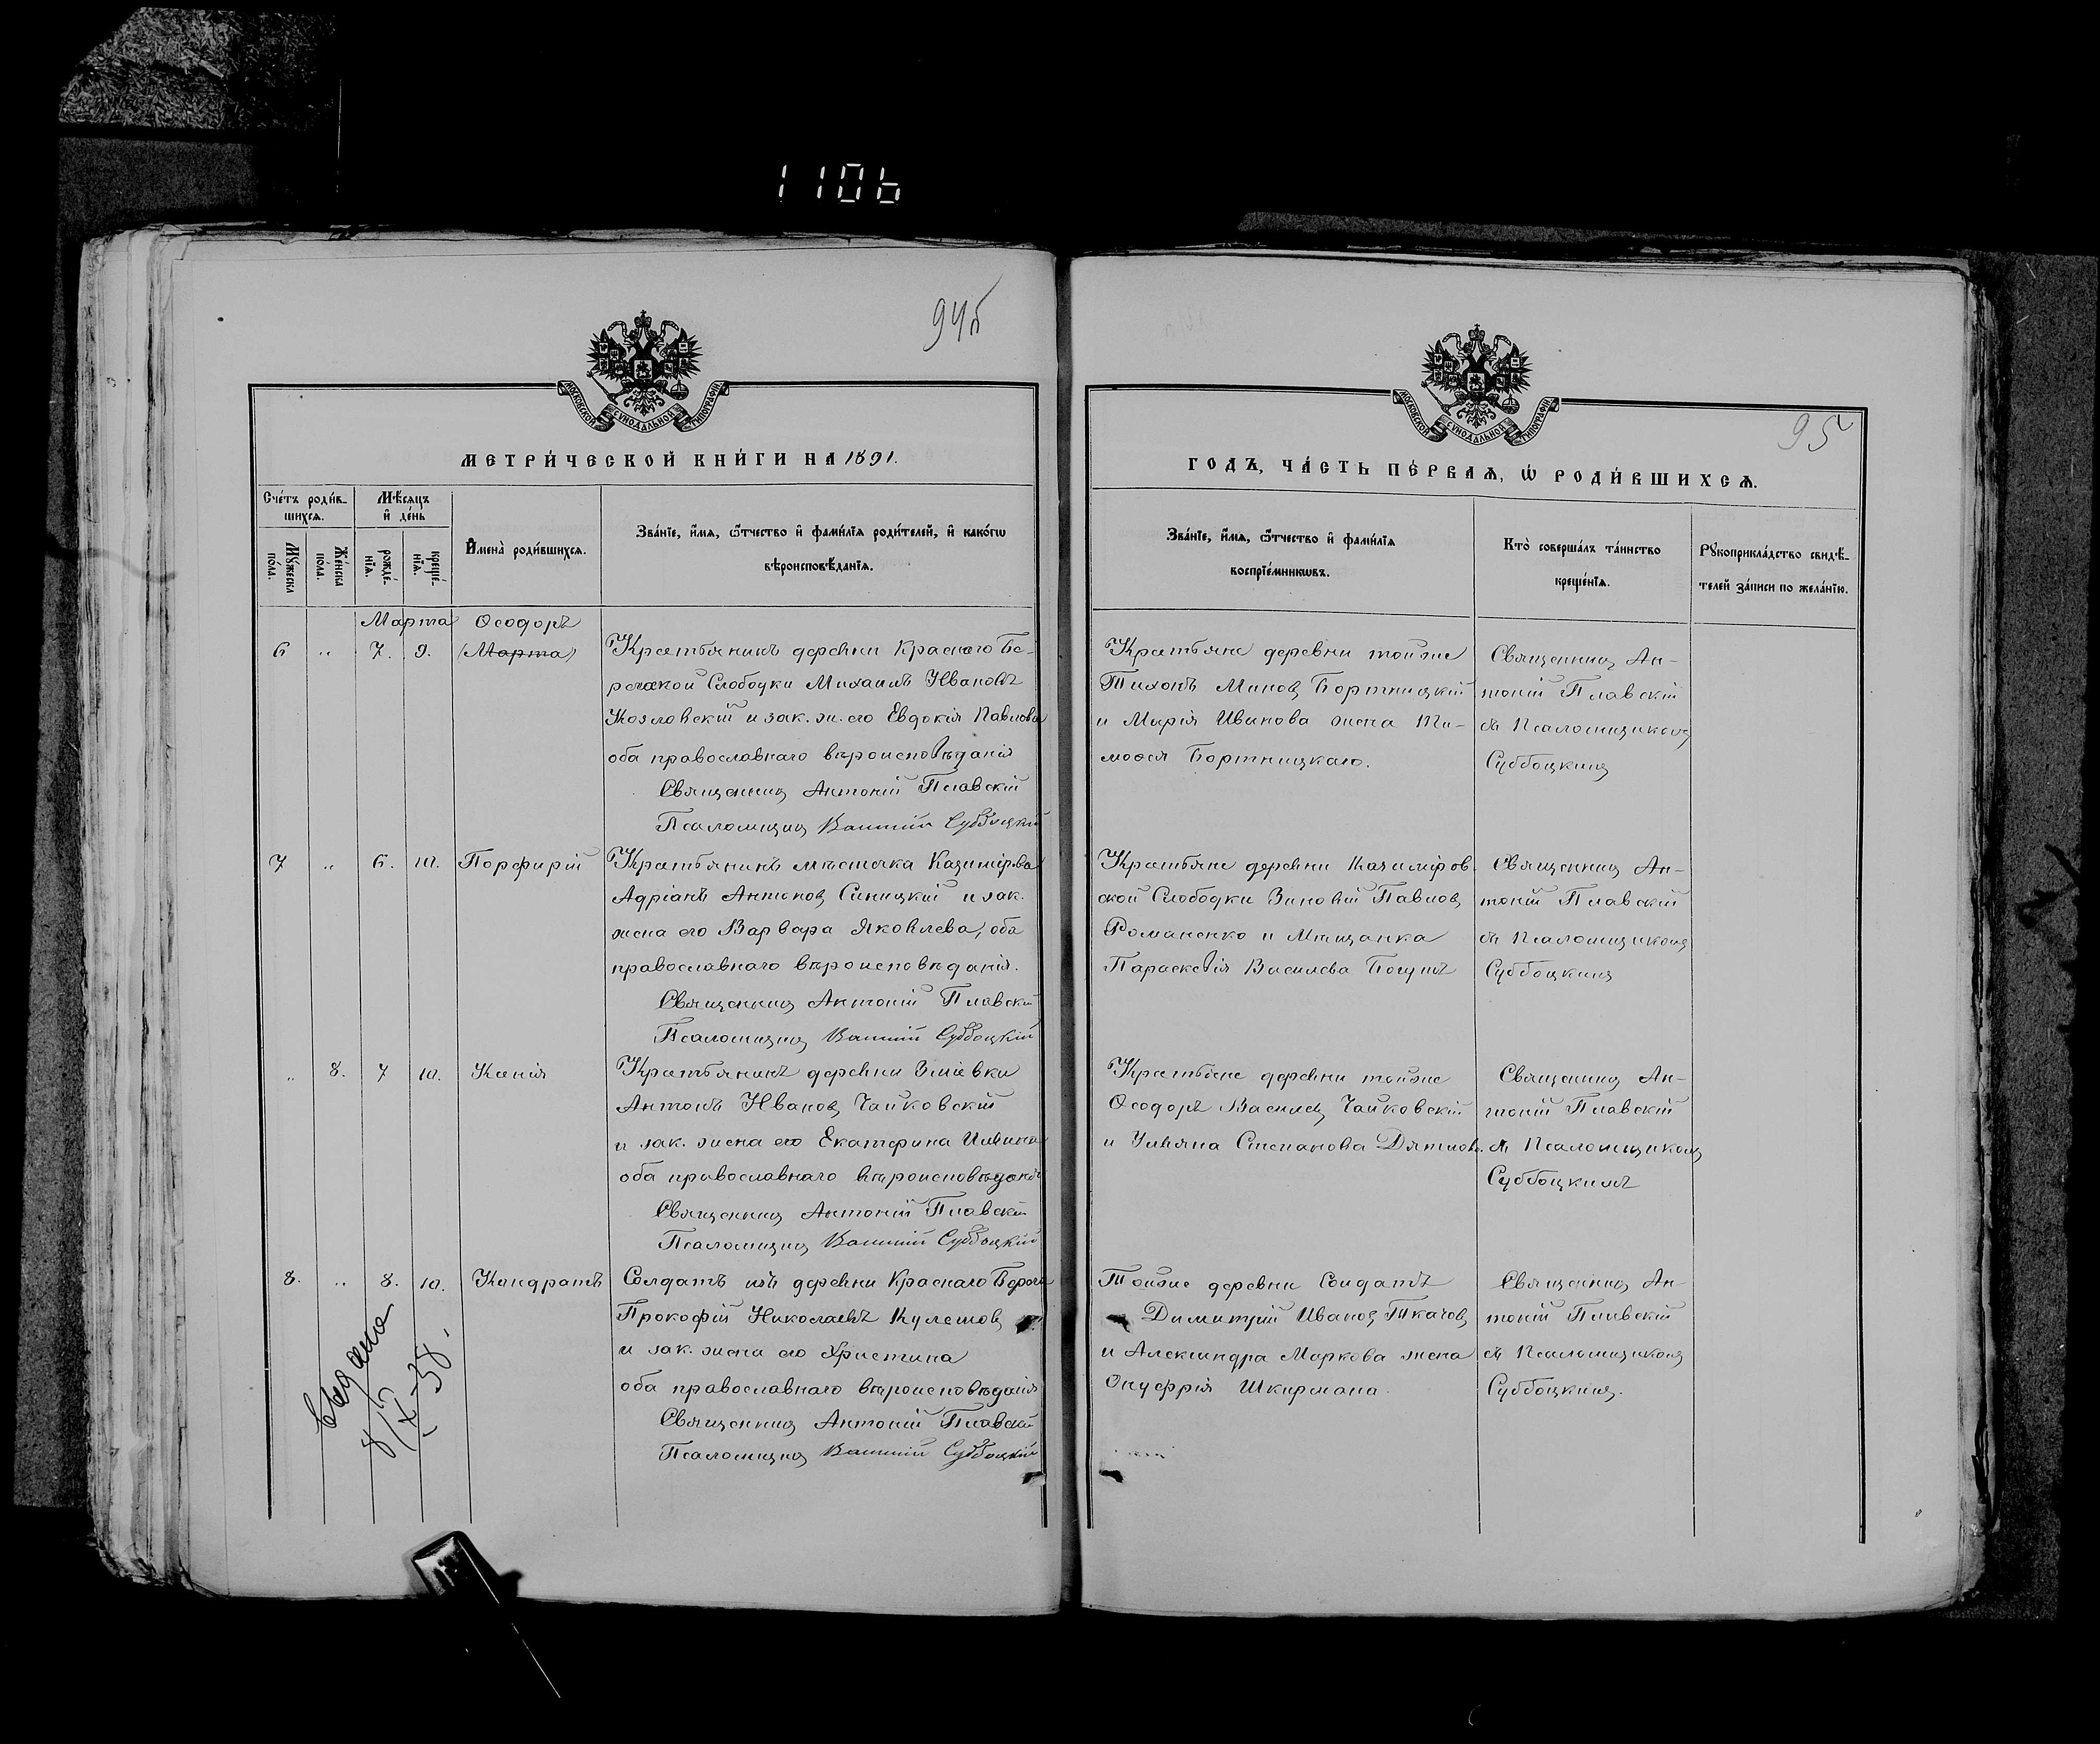 1106
94б
МОСКОВСКОЙ СѴНОДАЛЬНОЙ ТИПОГРАФІИ
МЕТРИ́ЧЕСКОЙ КНИ́ГИ НА 1891.
Сче́тъ роди́в-
шихсѧ.
Мѣ́сѧцъ
и҆ де́нь
Мꙋ́жеска
по́ла.
Же́нска
по́ла.
рожде́-
нїѧ.
креще́-
нїѧ.
И҆мена̀ роди́вшихсѧ.
Зва́нїе, и҆́мѧ, ѻ҆́тчество и҆ фами́лїѧ роди́телей, и҆ како́гѡ
вѣроисповѣ́данїѧ.
Марта Ѳеодоръ
6 " 7. 9. (Марта) Крестьянинъ деревни Краснаго Бе-
режской Слободки Михаилъ Ивановъ
Козловскій и зак. ж. его Евдокія Павлова
оба православнаго вѣроисповѣданія
Священникъ Антоній Плавскій
Псаломщикъ Суббоцкій
7 " 6. 10. Порфирій Крестьянинъ мѣстечка Казимірова
Адріанъ Антоновъ Синицкій и зак.
жена его Варвара Яковлева, оба
православнаго вѣроисповѣданія.
Священникъ Антоній Плавскій
Псаломщикъ Суббоцкій
" 8. 7 10. Ксенія Крестьянинъ деревни Зміевки
Антонъ Ивановъ Чайковскій
и зак. жена его Екатерина Ильина
оба православнаго вѣроисповѣданія
Священникъ Антоній Плавскій
Псаломщикъ Суббоцкій
8. " 8. 10. Кондратъ Солдатъ изъ деревни Краснаго Берега
Прокофій Николаевъ Кулешовъ
и зак. жена его Христина
оба православнаго вѣроисповѣданія
Священникъ Антоній Плавскій
Псаломщикъ Суббоцкій
95
МОСКОВСКОЙ СѴНОДАЛЬНОЙ ТИПОГРАФІИ
ГОДЪ, ЧА́СТЬ ПЕ́РВАѦ, Ѡ҆ РОДИ́ВШИХСѦ.
Зва́нїе, и҆́мѧ, ѻ҆́тчество и҆ фами́лїѧ
воспрїе́мникѡвъ.
Кто̀ соверша́лъ та́инство
креще́нїѧ.
Рꙋкоприкла́дство свидѣ́-
телей за́писи по жела́нїю.
Крестьяне деревни тойже
Тихонъ Миновъ Бортницкій
и Марія Иванова жена Ти-
моѳея Бортницкаго.
Священникъ Ан-
тоній Плавскій
съ Псаломщикомъ
Суббоцкимъ
Крестьяне деревни Казиміров-
ской Слободки Зиновій Павловъ
Романенко и Мѣщанка
Параскевія Василева Богунъ
Священникъ Ан-
тоній Плавскій
съ Псаломщикомъ
Суббоцкимъ
Крестьяне деревни тойже
Ѳеодоръ Василевъ Чайковскій
и Ульяна Степанова Дятлова.
Священникъ Ан-
тоній Плавскій
съ Псаломщикомъ
Суббоцкимъ
Тойже деревни Солдатъ
Димитрій Ивановъ Ткачовъ
и Александра Маркова жена
Онуфрія Шкирмана.
Священникъ Ан-
тоній Плавскій
съ Псаломщикомъ
Суббоцкимъ.